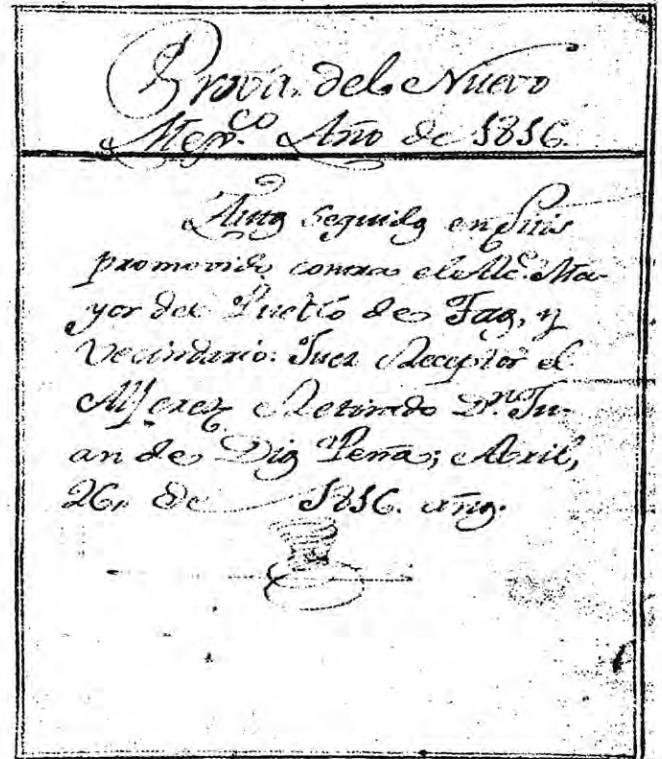 Prova. del Nuevo
Mexco. Año de 1816.
Autos seguidos en Juis
promovido contra el Alc.e Ma-
yor del Pueblo de Taos, y
Vecindario. Juez Receptor el
Alferez Retirado Dn. Ju-
an de Dios Peña; Abril,
26, de 1816. años.